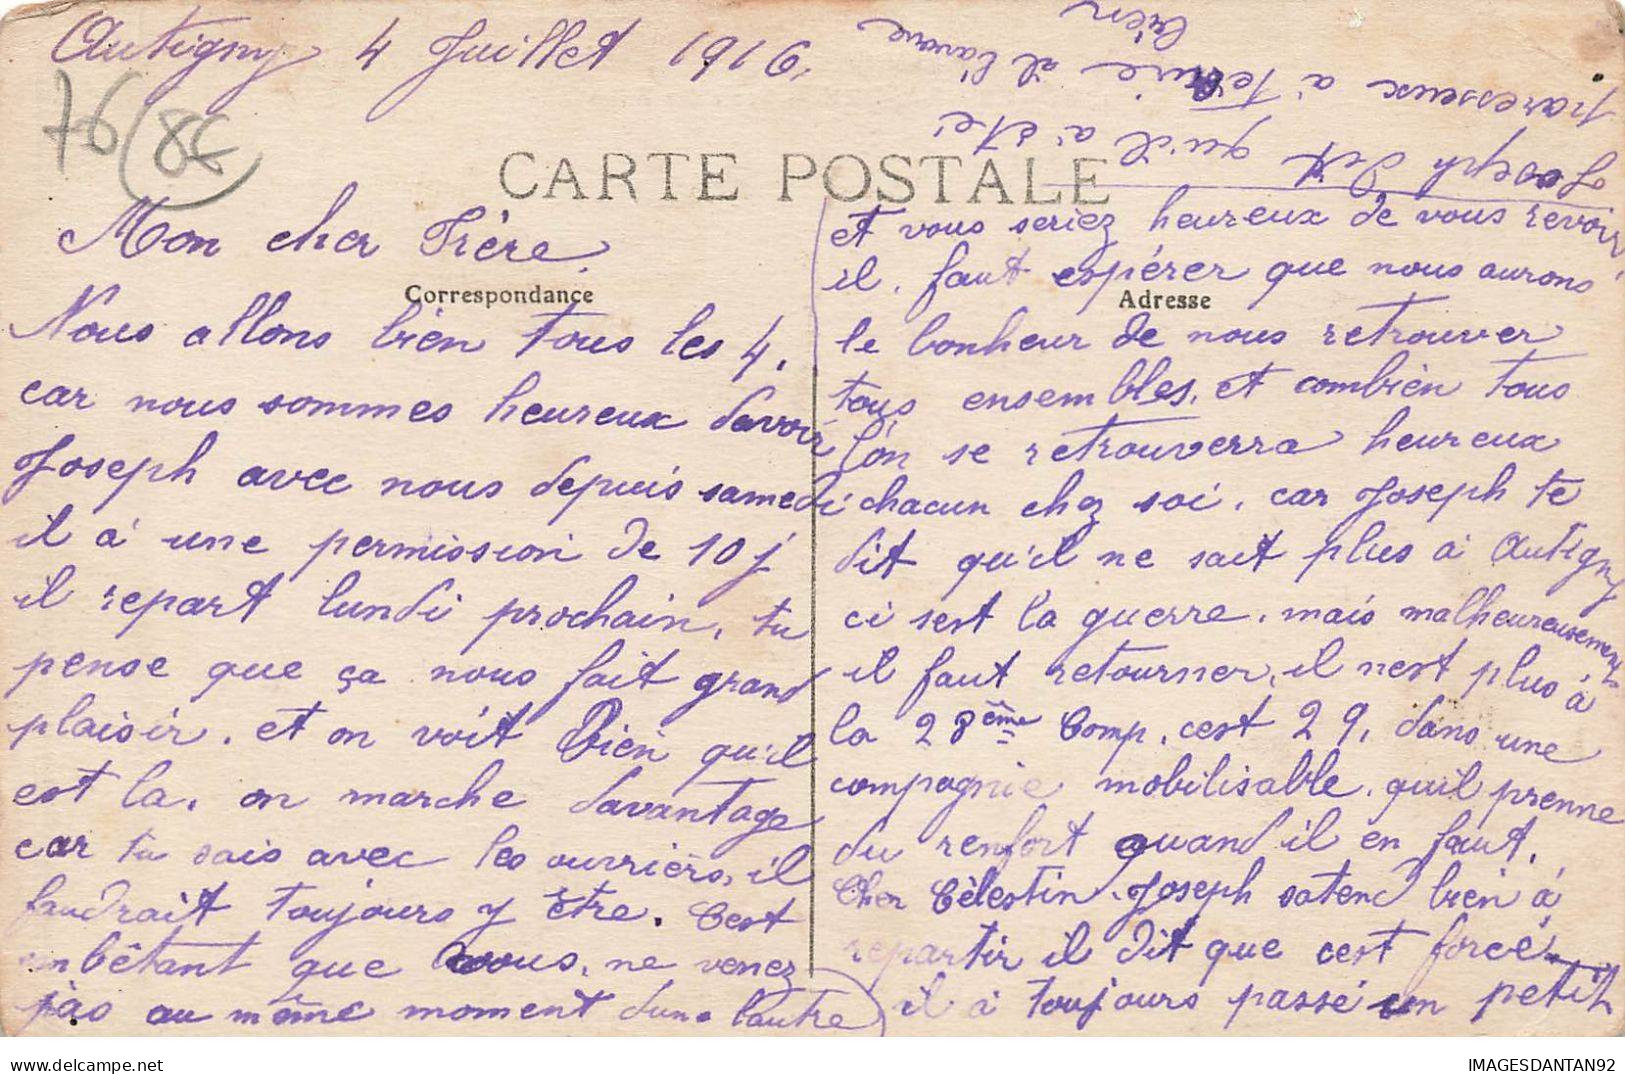 Autigny 4 Juillet 1916.
76 (86
CARTE POSTALE
Mon cher Frère.
Correspondance
Nous allons bien tous les 4.
car nous sommes heureux davoir
Joseph avec nous depuis samedi
il à une permission de 10 j
il repart lundi prochain, tu
pense que ça nous fait grand
plaisir. et on voit Bien qu'il
est la. on marche davantage
car tu sais avec les ouvriers, il
faudrait toujours y être. Cest
embêtant que vous, ne venez
pas au même moment dun lautre
et vous seriez heureux de vous revoir,
il, faut espérer que nous aurons
Adresse
le bonheur de nous retrouver
tous ensembles, et combien tous
l'on se retrouverra heureux
chacun chez soi, car Joseph te
dit qu'il ne sait plus à Autigny
ci sest la guerre, mais malheureusement
il faut retourner, il nest plus à
la 28ème Comp, cest 29, dans une
compagnie mobilisable, quil prenne
du renfort quand il en faut.
Cher Célestin, Joseph satend bien à
repartir il dit que cest forcé.
il à toujours passé un petit
Joseph dit qu'il à été
paresseux à técrire il l'avoue
bien
IMAGESDANTAN92